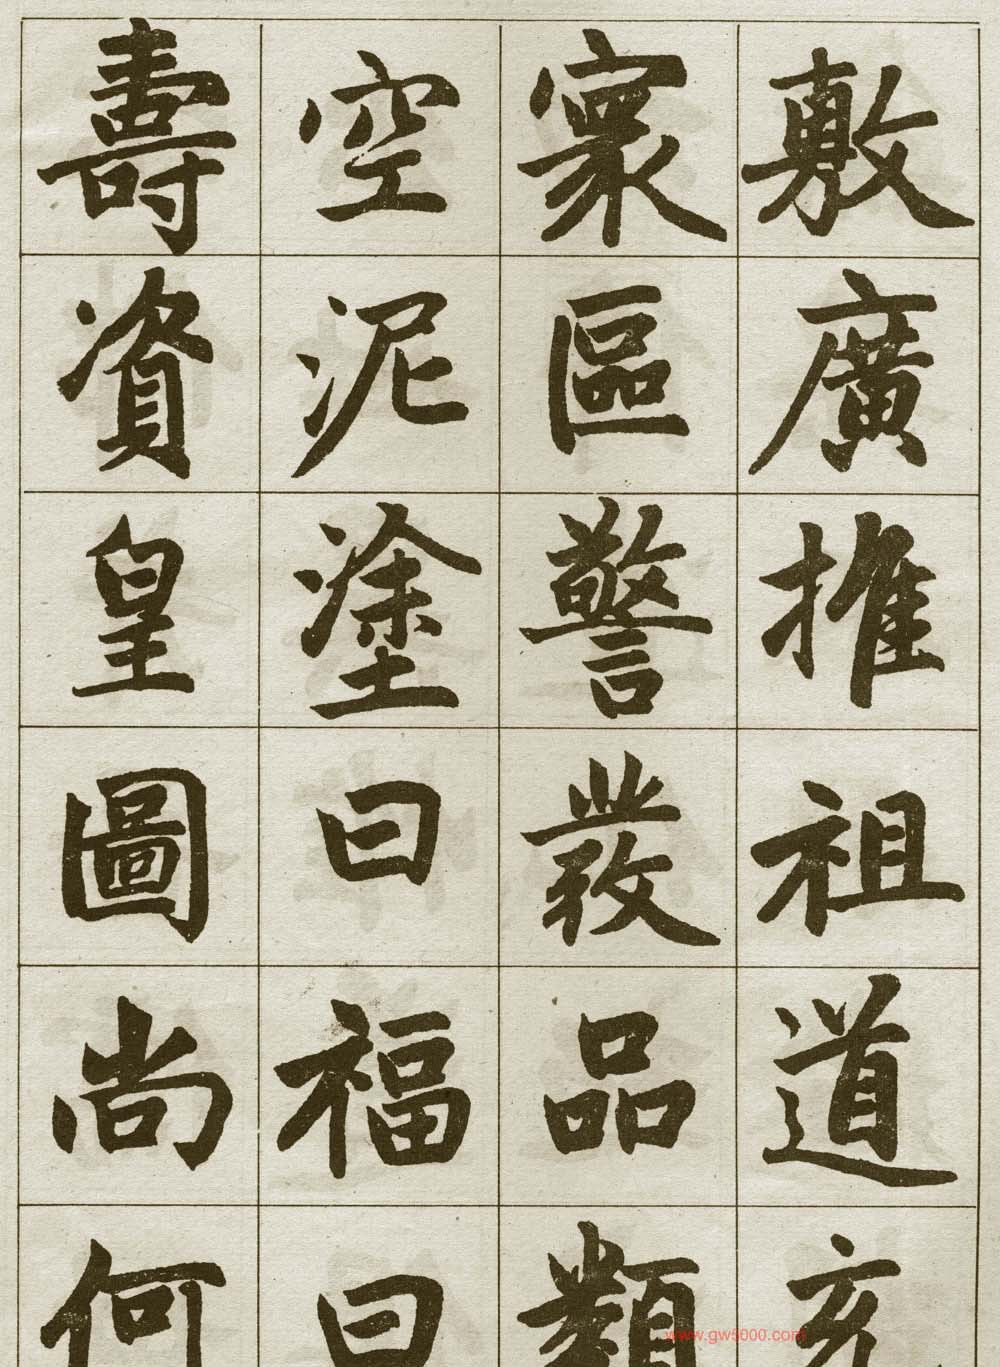 敷廣推祖道玄
寰區警叢品類
空泥塗曰福曰
壽資皇圖尚何
www.gw5000.com